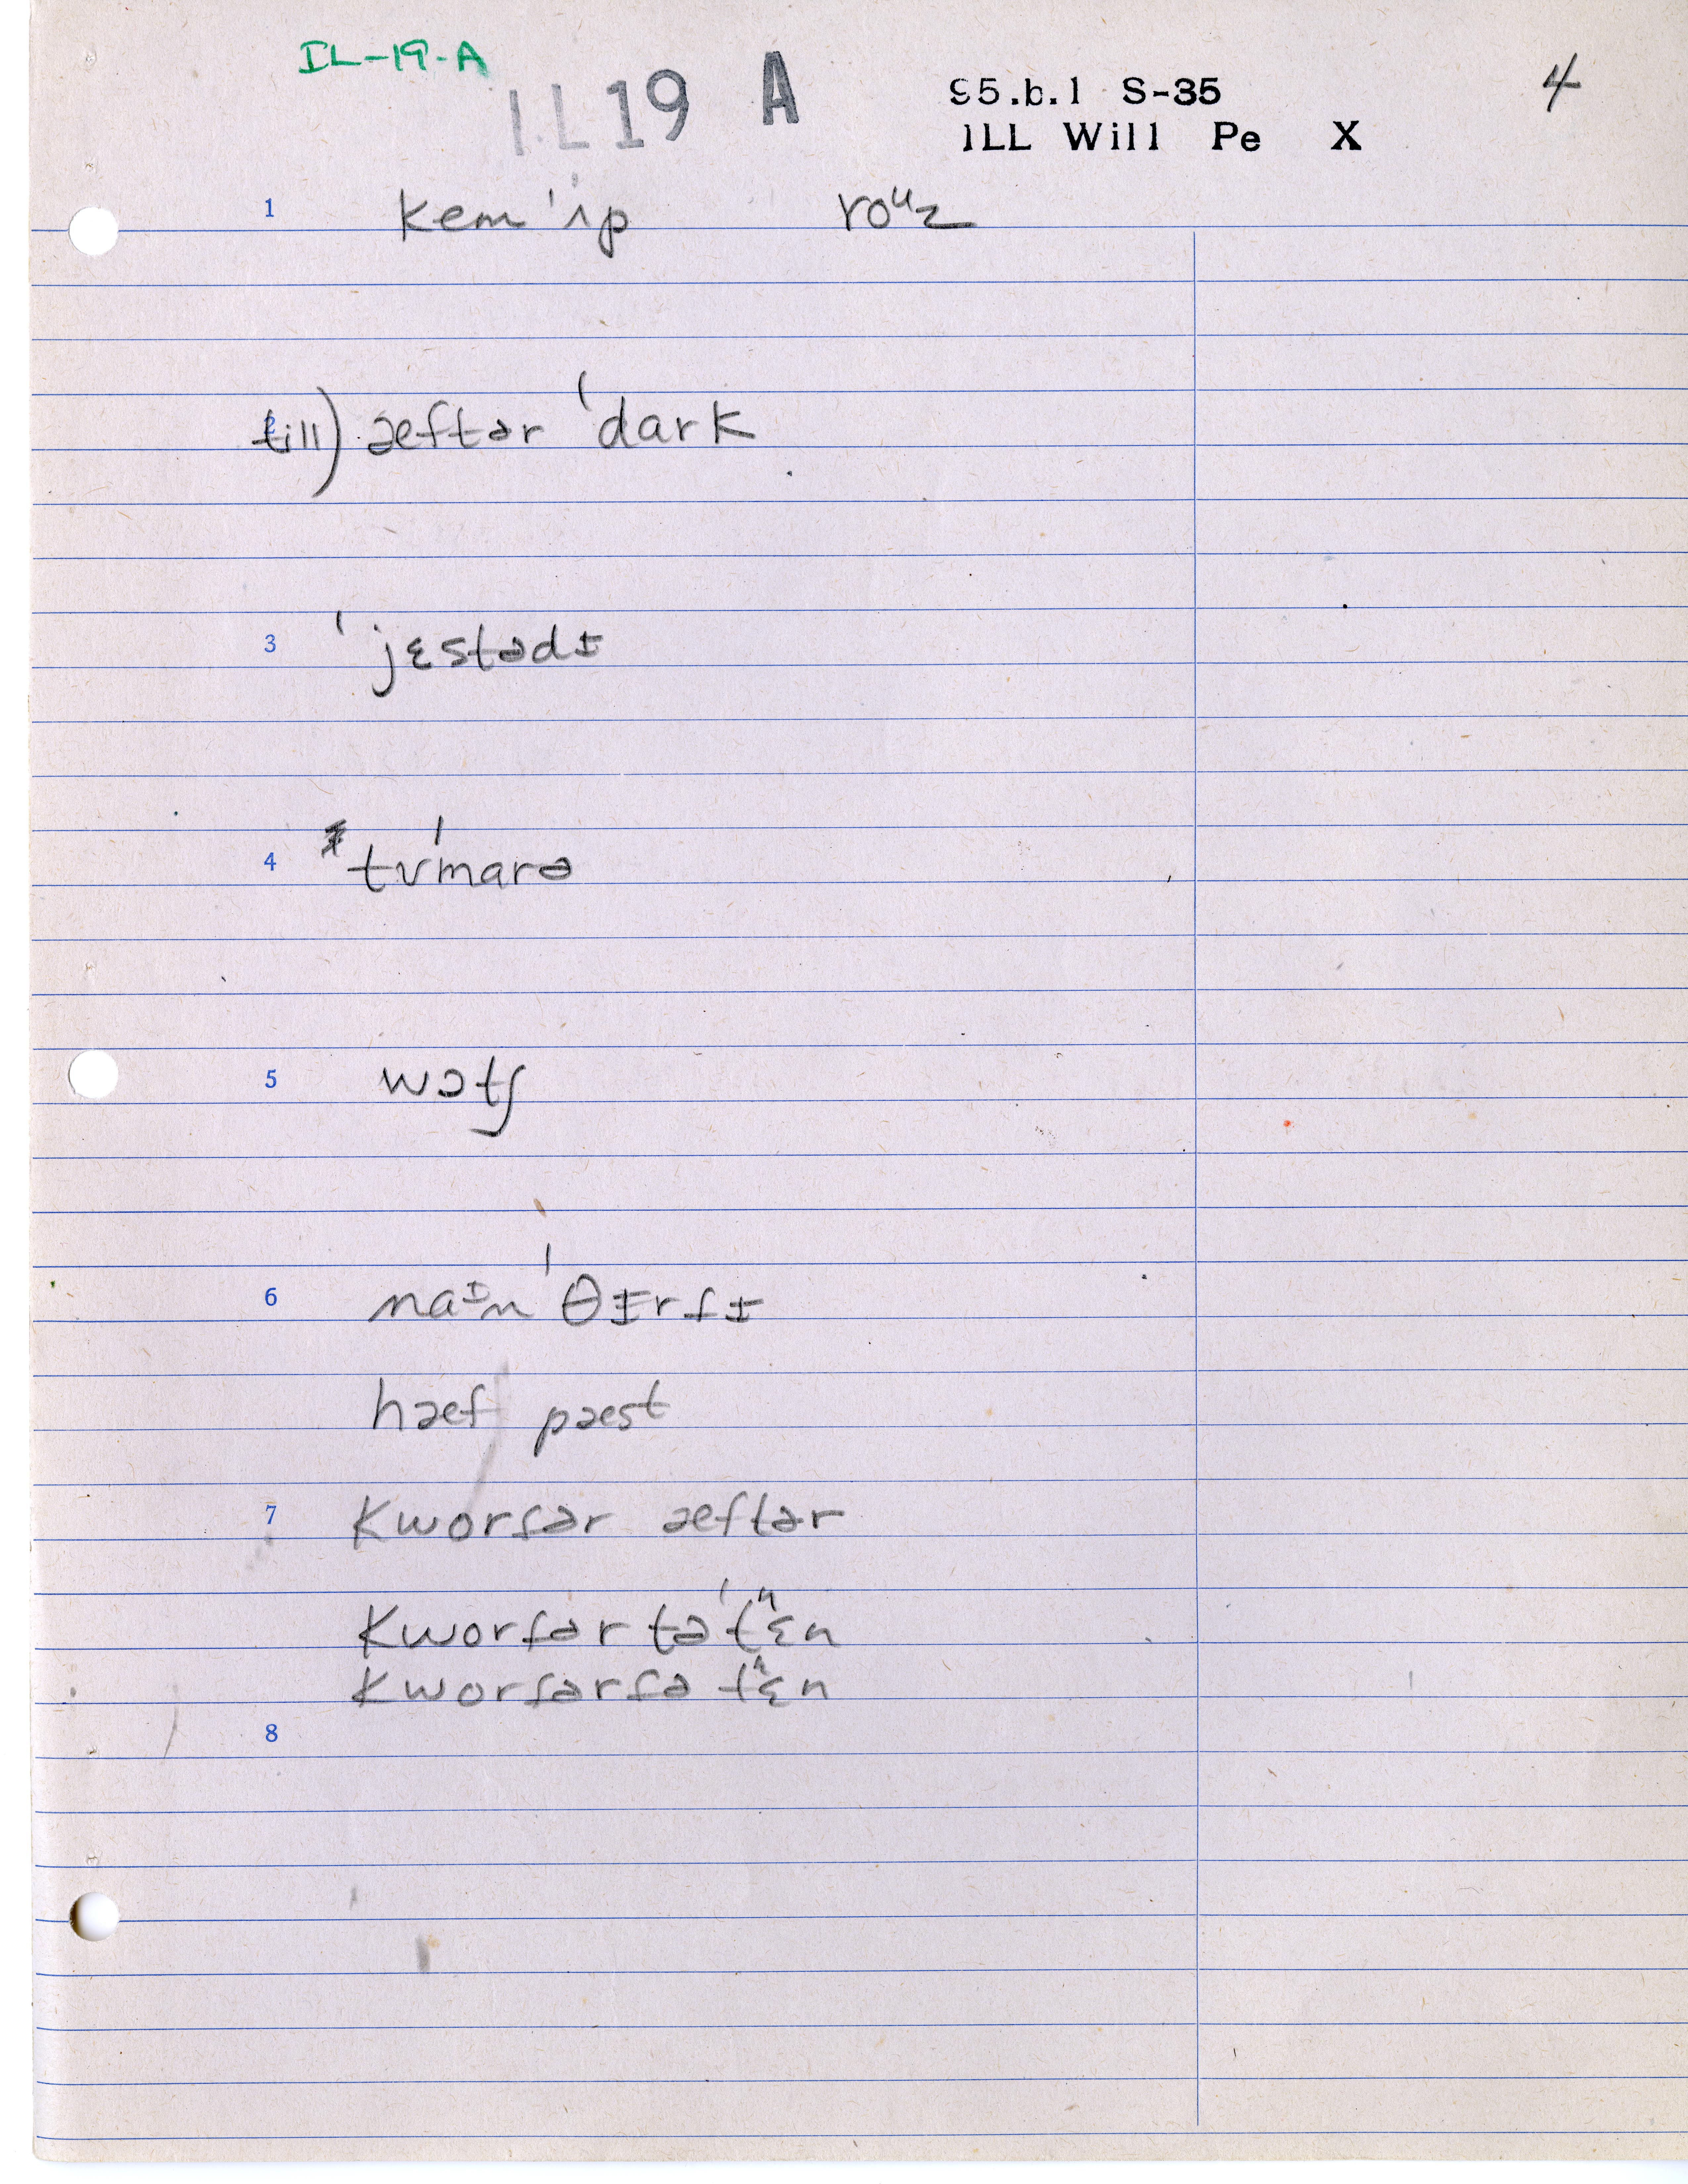 IL-19-A
I.L 19 A
95.b.1 S-35 4
ILL Will Pe X
1 kem ˈʌp roᶷz
till) æftər ˈdark
3 ˈjɛstədɪ
4 tʊˈmarə
5 wɔtʃ
6 naᶦn ˈθɪrtɪ
hæf pæst
7 kwortər æftər
kwortər təˈtʰɛn
kwortərtə tʰɛn
8